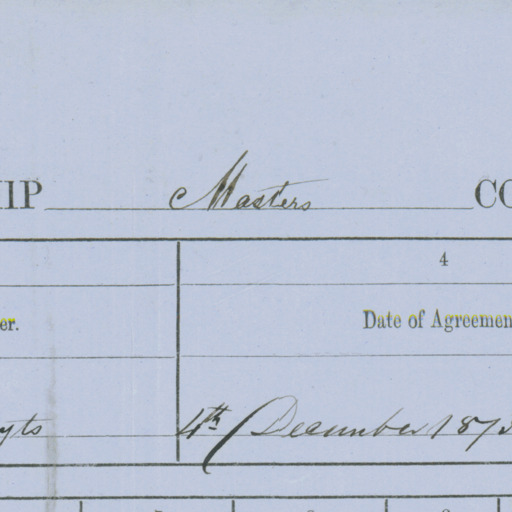 HIP Masters CO
4
er. Date of Agreemen
yts 4th December 187